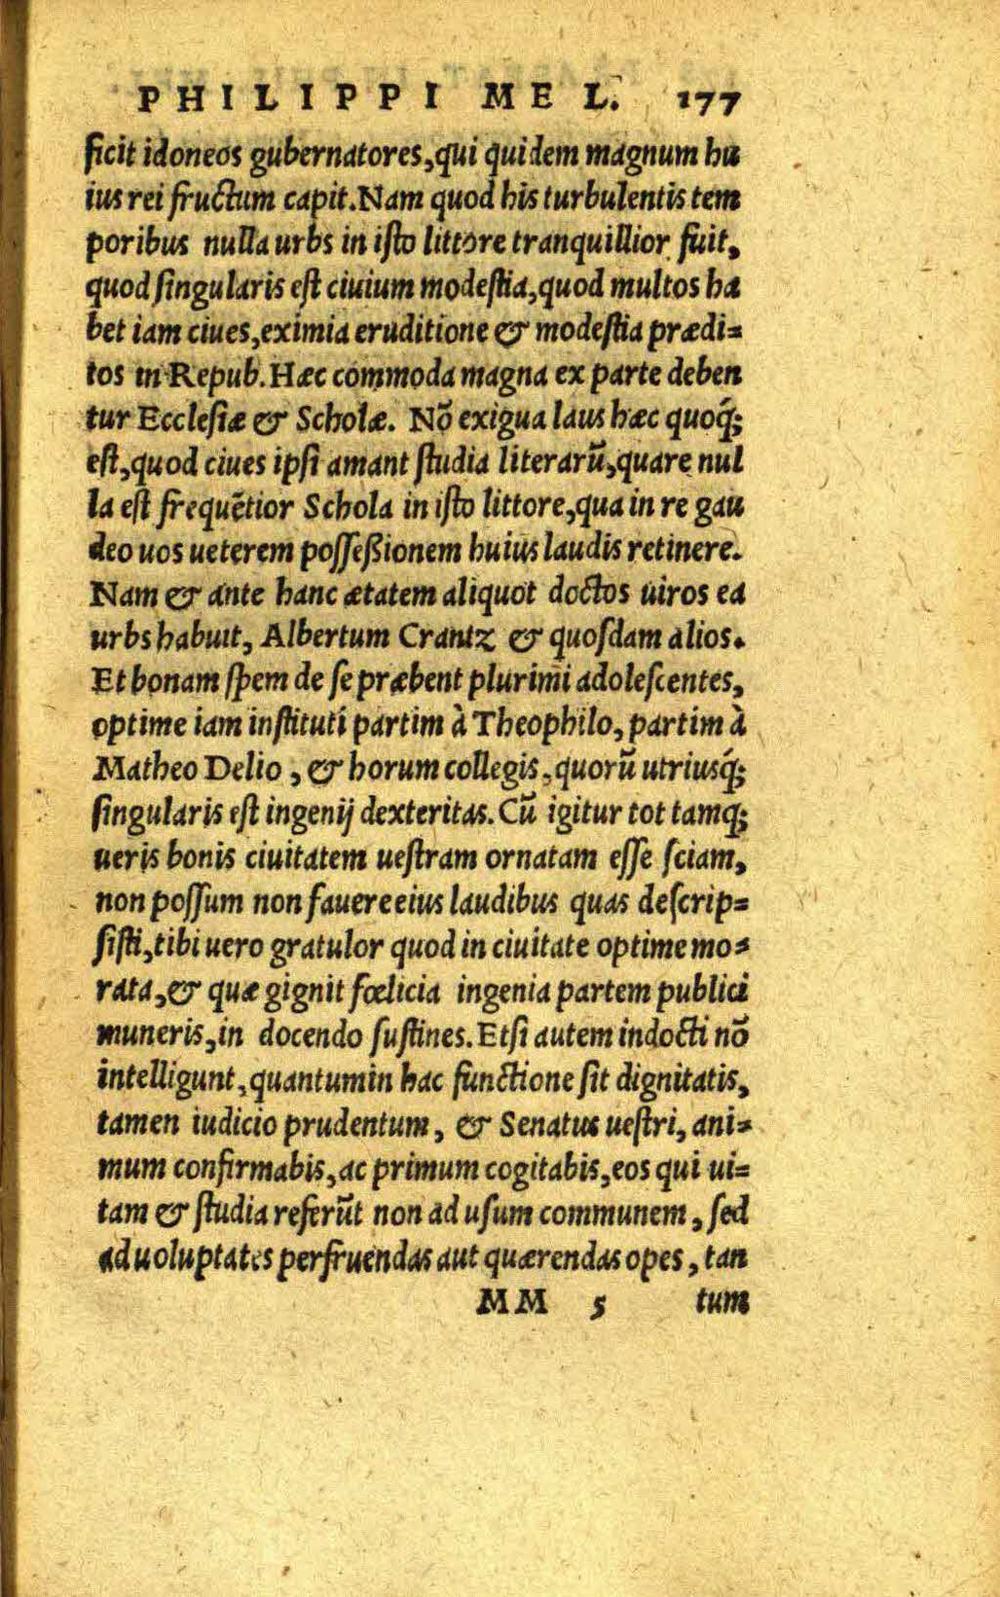 PHILIPPI MEL. 177
ficit idoneos gubernatores, qui quidem magnum hu
ius rei fructum capit. Nam quod his turbulentis tem
poribus nulla urbs in isto littore tranquillior fuit,
quod singularis est ciuium modestia, quod multos ha
bet iam ciues, eximia eruditione & modestia prædi=
tos in Repub. Hæc commoda magna ex parte deben
tur Ecclesiæ & Scholæ. Nõ exigua laus hæc quoq́;
est, quod ciues ipsi amant studia literarũ, quare nul
la est frequẽtior Schola in isto littore, qua in re gau
deo uos ueterem posseßionem huius laudis retinere.
Nam & ante hanc ætatem aliquot doctos uiros ea
urbs habuit, Albertum Crantz & quosdam alios.
Et bonam spem de se præbent plurimi adolescentes,
optime iam instituti partim à Theophilo, partim à
Matheo Delio, & horum collegis, quorũ utriusq́;
singularis est ingenij dexteritas. Cũ igitur tot tamq;
ueris bonis ciuitatem uestram ornatam esse sciam,
non possum non fauere eius laudibus quas descrip=
sisti, tibi uero gratulor quod in ciuitate optime mo=
rata, & quæ gignit fœlicia ingenia partem publici
muneris, in docendo sustines. Etsi autem indocti nõ
intelligunt, quantum in hac functione sit dignitatis,
tamen iudicio prudentum, & Senatus uestri, ani=
mum confirmabis, ac primum cogitabis, eos qui ui=
tam & studia referũt non ad usum communem, sed
ad uoluptates perfruendas aut quærendas opes, tan
MM 5 tum